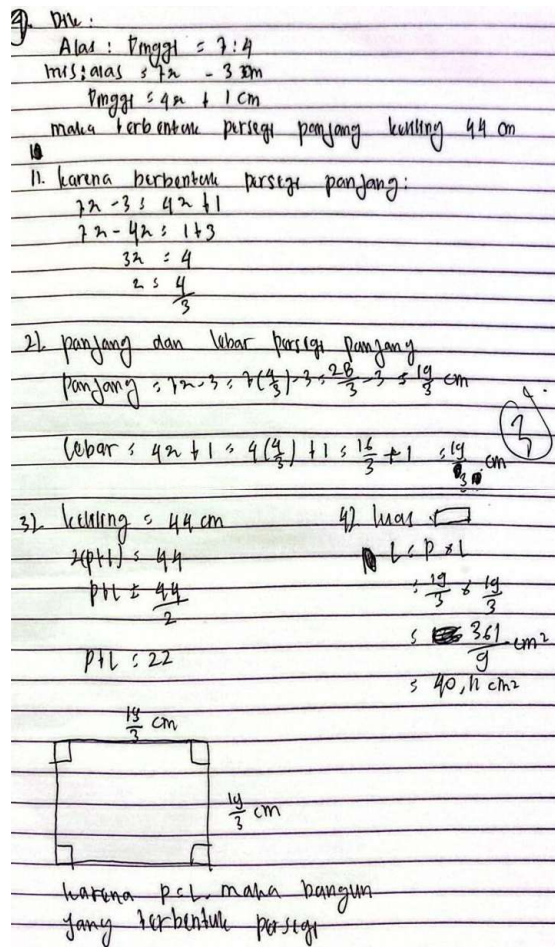 9. Dik:
Alas : Tinggi = 7:4
mis: alas = 7x - 3 cm
Tinggi = 4x + 1 cm
maka terbentuk persegi panjang keliling 44 cm
1). karena berbentuk persegi panjang:
7x - 3 = 4x + 1
7x - 4x = 1 + 3
3x = 4
x = 4/3
2). panjang dan lebar persegi panjang
panjang = 7x - 3 = 7(4/3) - 3 = 28/3 - 3 = 19/3 cm
lebar = 4x + 1 = 4(4/3) + 1 = 16/3 + 1 = 19/3 cm
3). keliling = 44 cm
2(p+l) = 44
p+l = 44/2
p+l = 22
4). luas
L = p x l
= 19/3 x 19/3
= 361/9 cm²
= 40,11 cm²
19/3 cm
19/3 cm
karena p=l. maka bangun
yang terbentuk persegi